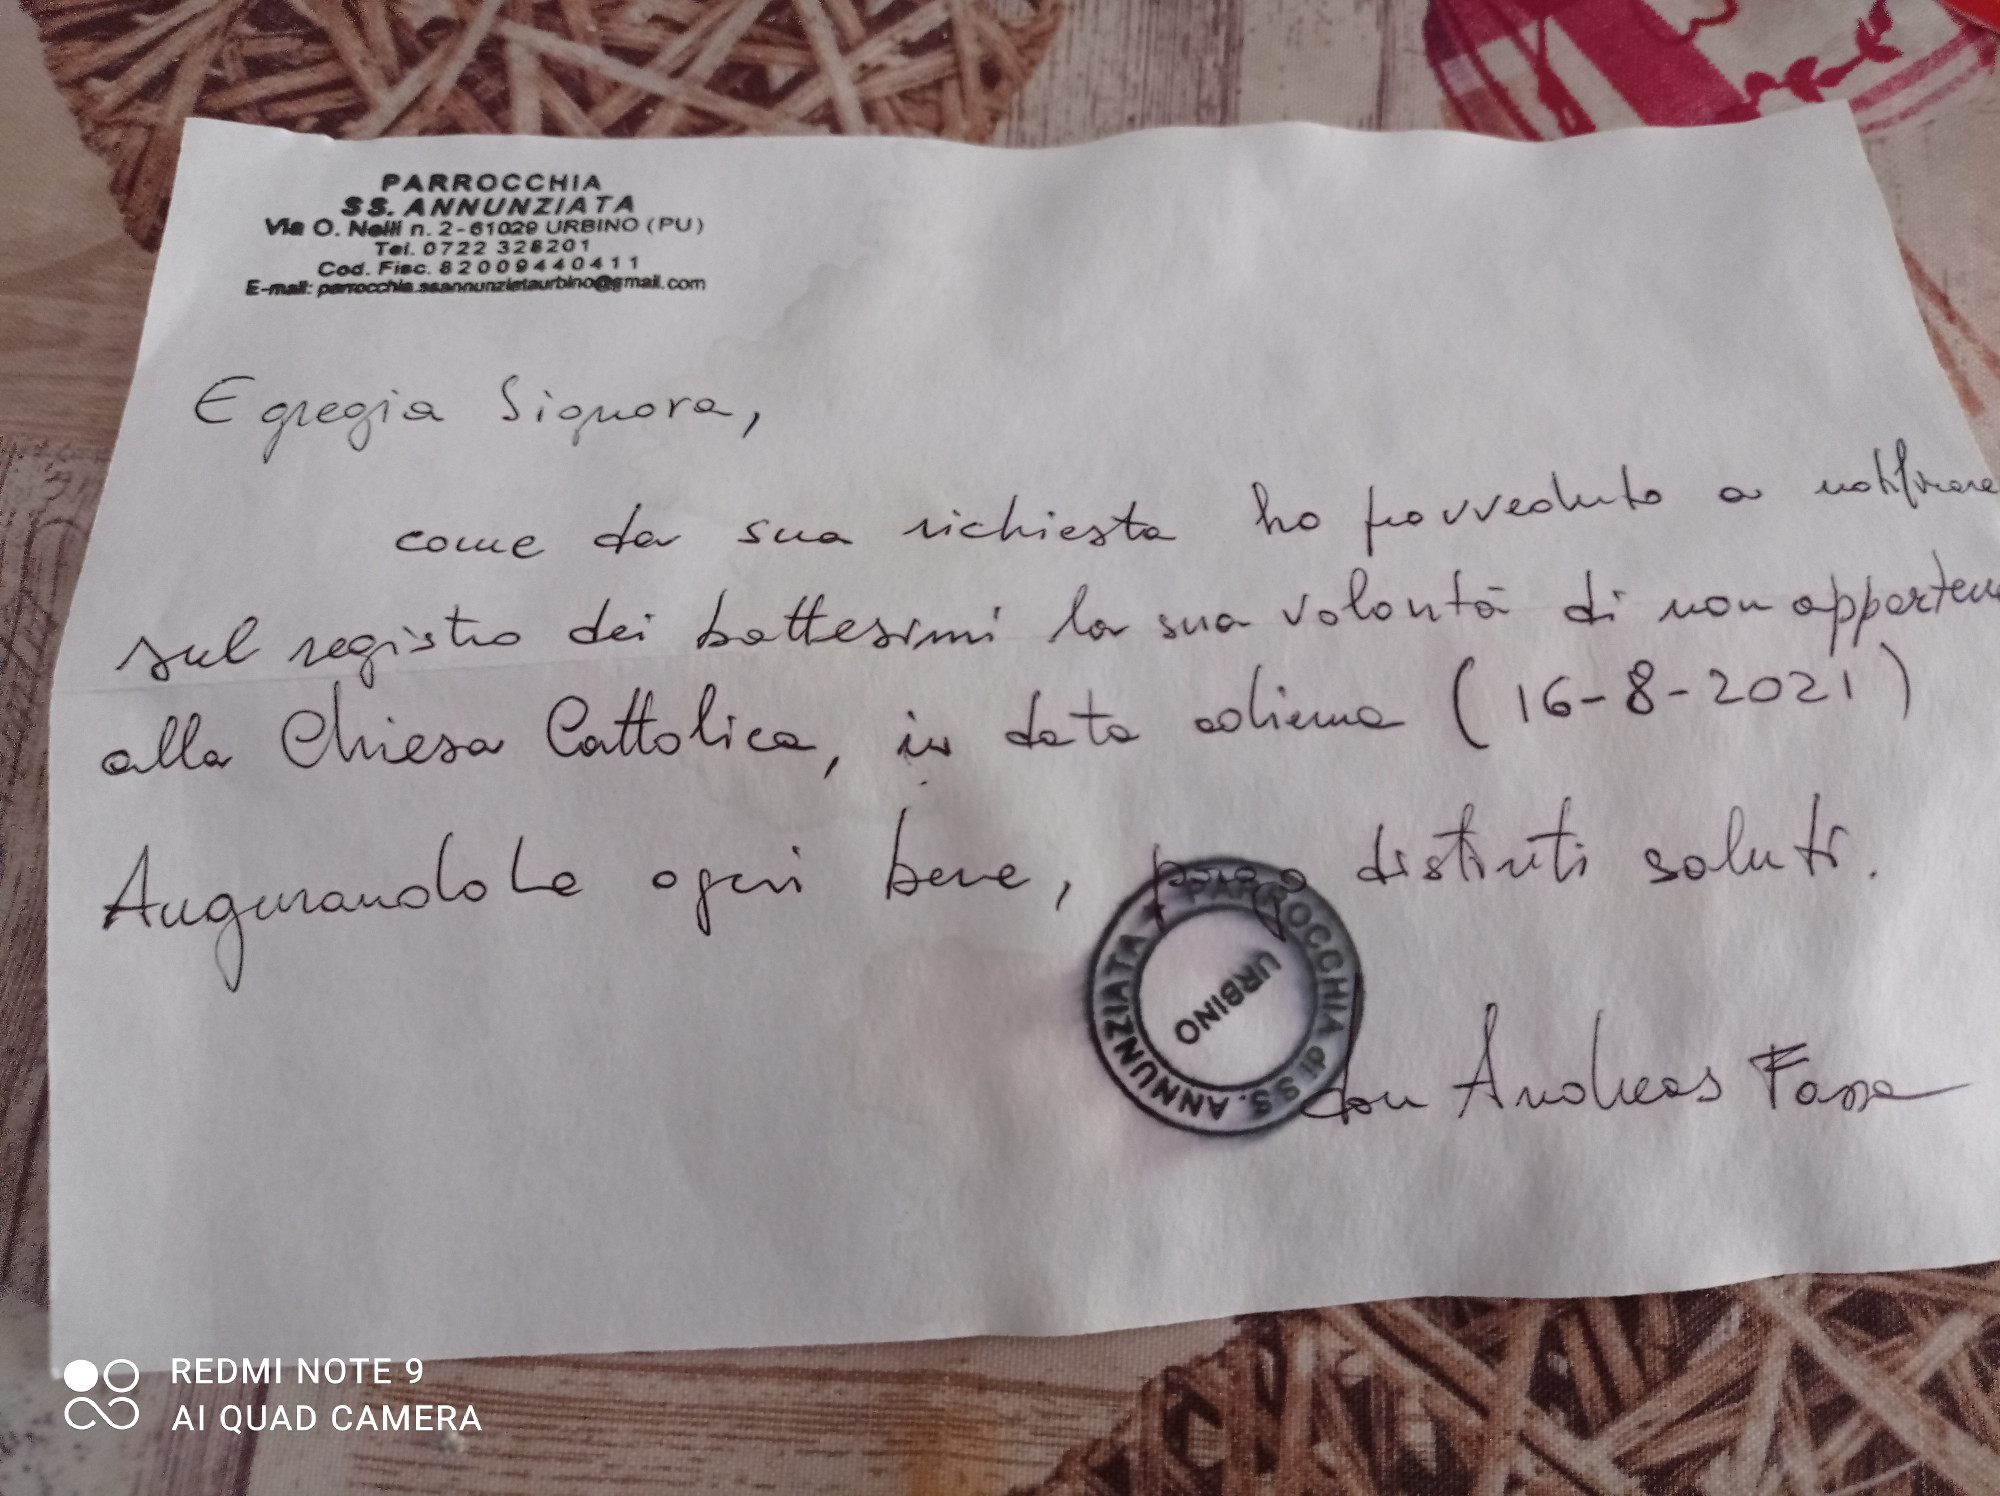 PARROCCHIA
SS. ANNUNZIATA
Via O. Nelli n. 2-61029 URBINO (PU)
Tel. 0722 328201
Cod. Fisc. 82009440411
E-mail: parrocchia.ssannunziataurbino@gmail.com
Egregia Signora,
come da sua richiesta ho provveduto a notificare
sul registro dei battesimi la sua volontà di non appartene
alla Chiesa Cattolica, in data odierna (16-8-2021)
AugurandoLe ogni bene, porgo distinti saluti.
PARROCCHIA di S.S. ANNUNZIATA
URBINO
don Andreas Fassa
REDMI NOTE 9
AI QUAD CAMERA